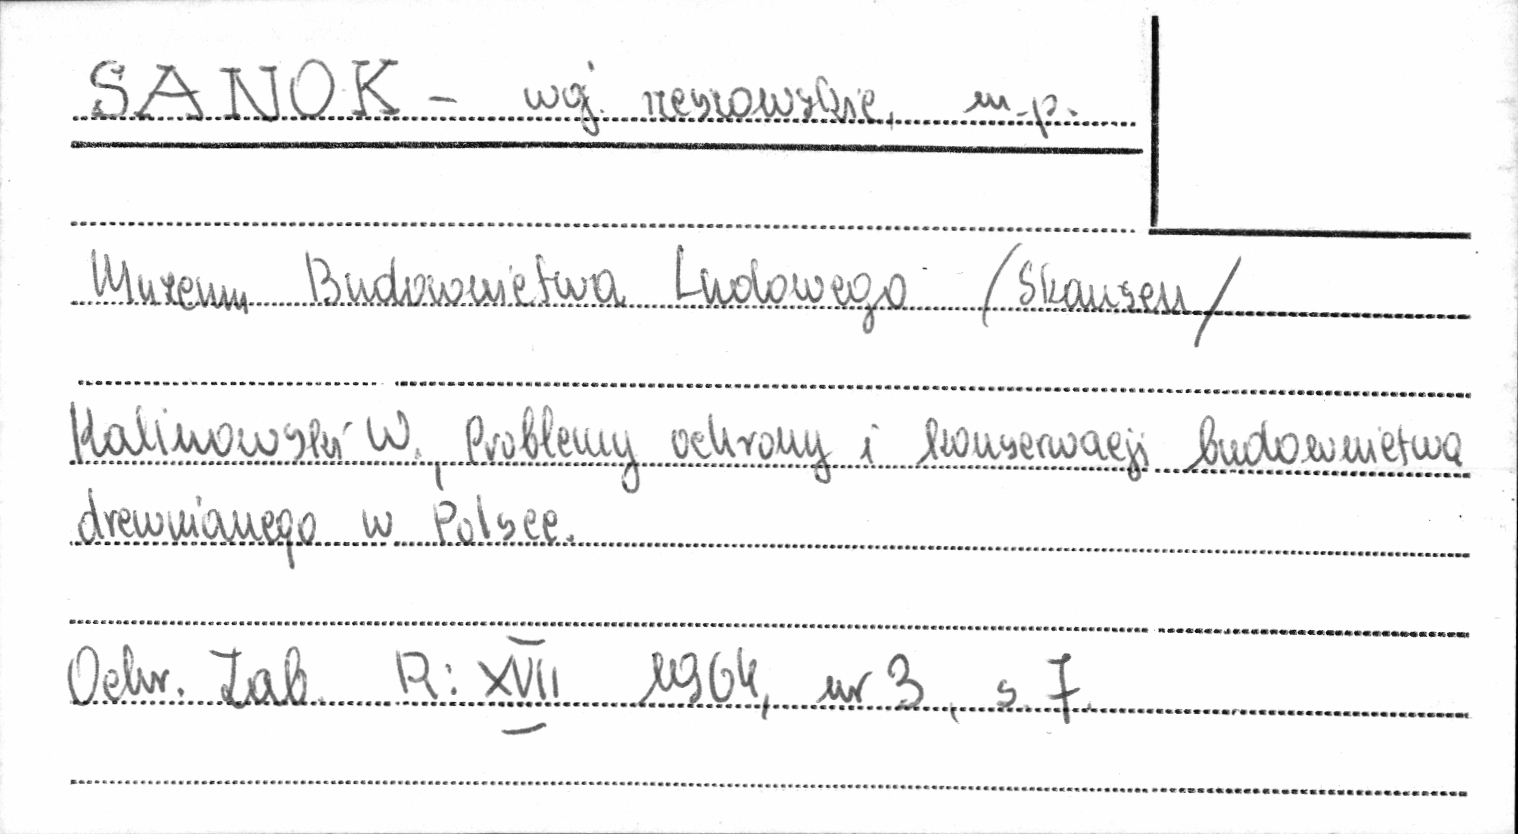 SANOK - woj. rzeszowskie, m.p.
Muzeum Budownictwa Ludowego /Skansen/
Kalinowski W., Problemy ochrony i konserwacji budownictwa
drewnianego w Polsce.
Ochr. Zab. R: XVII 1964, nr 3, s. 7.